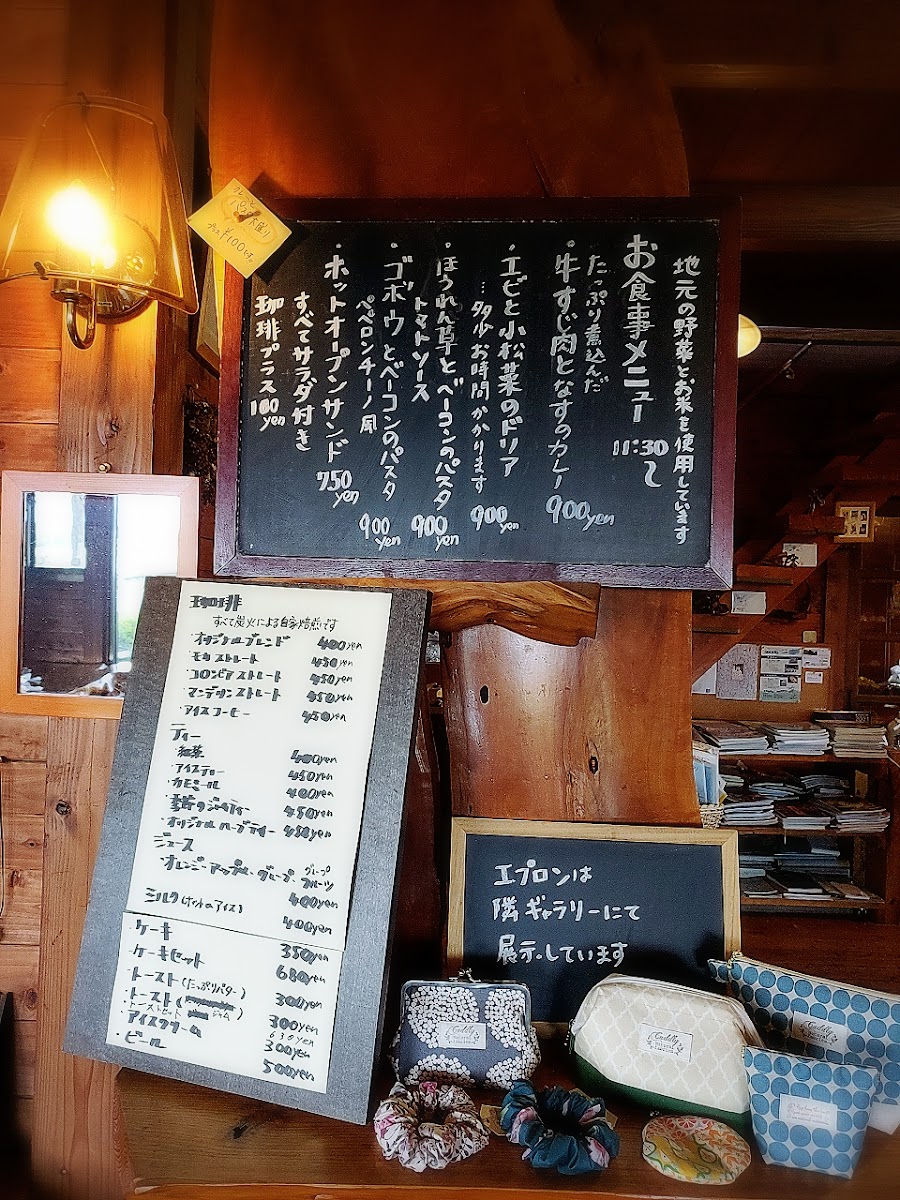 地元の野菜とお米を使用しています
お食事メニュー 11:30〜
たっぷり煮込んだ
・牛すじ肉となすのカレー 900yen
・エビと小松菜のドリア 900yen
…多少お時間かかります
・ほうれん草とベーコンのパスタ 900yen
トマトソース
・ゴボウとベーコンのパスタ 900yen
ペペロンチーノ風
・ホットオープンサンド 750yen
すべてサラダ付き
珈琲プラス100yen
大盛り
プラス¥100です。
珈琲
すべて炭火による自家焙煎です
・オリジナルブレンド 400yen
・モカストレート 450yen
・コロンビアストレート 450yen
・マンデリンストレート 450yen
・アイスコーヒー 450yen
ティー
・紅茶 400yen
・アイスティー 450yen
・カモミール 400yen
450yen
・オリジナルハーブティー 450yen
ジュース
・オレンジ・アップル・グレープ・グレープフルーツ 400yen
ミルク(ホットorアイス) 400yen
・ケーキ 350yen
・ケーキセット 680yen
・トースト(たっぷりバター) 300yen
・トースト(ジャム) 300yen
・トーストセット 630yen
・アイスクリーム 300yen
・ビール 500yen
エプロンは
隣ギャラリーにて
展示しています
Cuddly
Cuddly
Cuddly